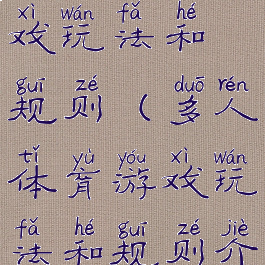 xì wán fǎ hé
戏玩法和
guī zé duō rén
规则(多人
tǐ yù yóu xì wán
体育游戏玩
fǎ hé guī zé jiè
法和规则介